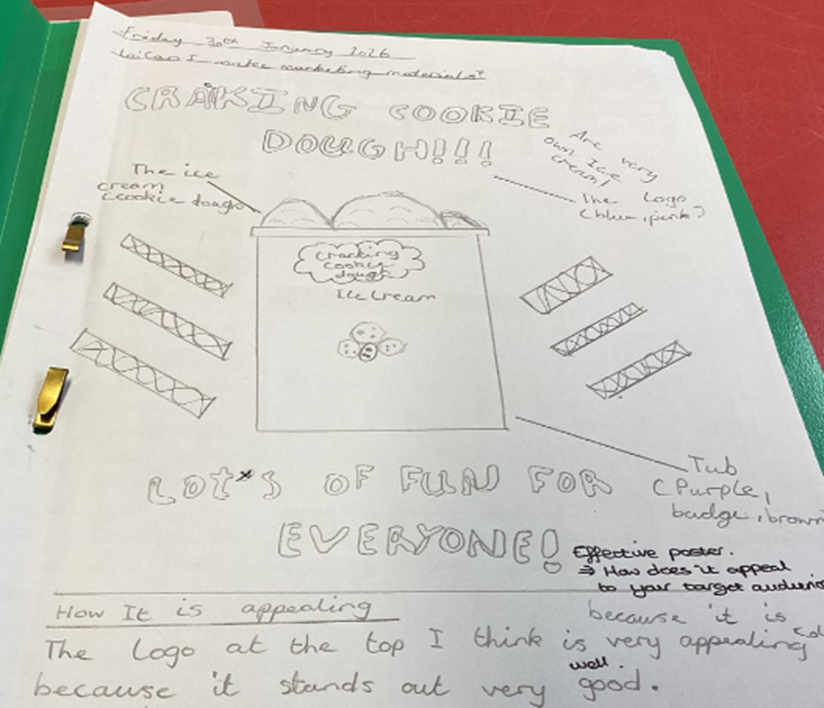 Friday 30th January 2026
L.i: Can I make marketing materials?
CRAKING COOKIE
DOUGH!!!
Are very
own Ice
cream!
The ice
cream
(cookie dough)
The Logo
(blue, pink)
Cracking
cookie
dough
Ice Cream
Tub
(Purple,
badge, brown
LOT*S OF FUN FOR
EVERYONE!
Effective poster.
⇒ How does it appeal
to your target audience
because it is
How It is appealing
The Logo at the top I think is very appealing
well.
because it stands out very good.